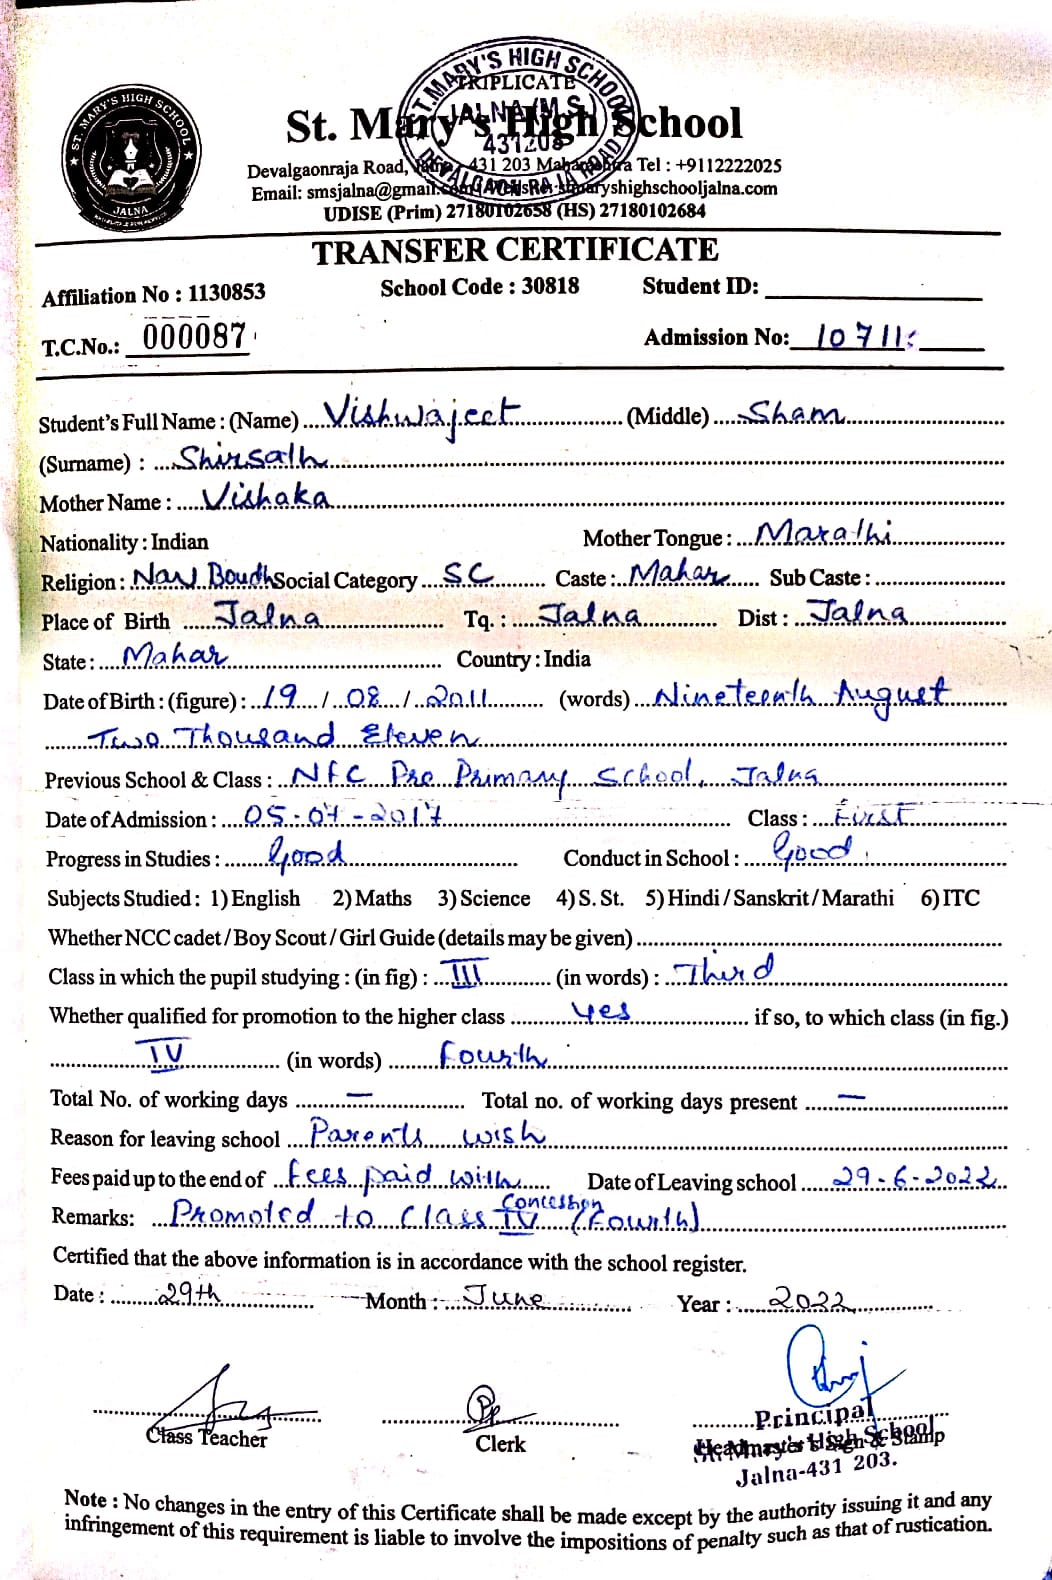 ST. MARY'S HIGH SCHOOL
JALNA
ST. MARY'S HIGH SCHOOL
TRIPLICATE
JALNA (M.S.)
431203
DEVALGAONRAJA ROAD
St. Mary's High School
Devalgaonraja Road, Jalna - 431 203 Maharashtra Tel : +9112222025
Email: smsjalna@gmail.com stmaryshighschooljalna.com
UDISE (Prim) 27180102658 (HS) 27180102684
TRANSFER CERTIFICATE
Affiliation No : 1130853 School Code : 30818 Student ID:
T.C.No.: 000087 Admission No: 10711
Student's Full Name : (Name) Vishwajeet (Middle) Sham
(Surname) : Shirsath
Mother Name : Vishaka
Nationality : Indian Mother Tongue : Marathi
Religion : Nav Boudh Social Category SC Caste : Mahar Sub Caste :
Place of Birth Jalna Tq. : Jalna Dist : Jalna
State : Mahar Country : India
Date of Birth : (figure) : 19 / 08 / 2011 (words) Nineteenth August
Two Thousand Eleven
Previous School & Class : NFC Pre Primary School, Jalna
Date of Admission : 05-07-2017 Class : First
Progress in Studies : Good Conduct in School : Good
Subjects Studied : 1) English 2) Maths 3) Science 4) S. St. 5) Hindi / Sanskrit / Marathi 6) ITC
Whether NCC cadet / Boy Scout / Girl Guide (details may be given)
Class in which the pupil studying : (in fig) : III (in words) : Third
Whether qualified for promotion to the higher class yes if so, to which class (in fig.)
IV (in words) Fourth
Total No. of working days — Total no. of working days present —
Reason for leaving school Parents wish
Fees paid up to the end of Fees paid with Concession Date of Leaving school 29-6-2022
Remarks: Promoted to Class IV (Fourth)
Certified that the above information is in accordance with the school register.
Date : 29th Month : June Year : 2022
Class Teacher Clerk Principal
Headmaster's Sign & Stamp
St. Mary's High School
Jalna-431 203.
Note : No changes in the entry of this Certificate shall be made except by the authority issuing it and any
infringement of this requirement is liable to involve the impositions of penalty such as that of rustication.